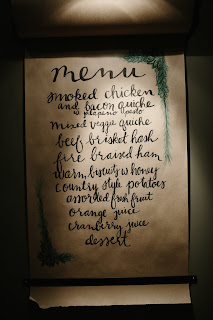 menu
smoked chicken
and bacon quiche
w jalapeño pesto
mixed veggie quiche
beef brisket hash
fire braised ham
warm biscuits w honey
country style potatoes
assorted fresh fruit
orange juice
cranberry juice
dessert